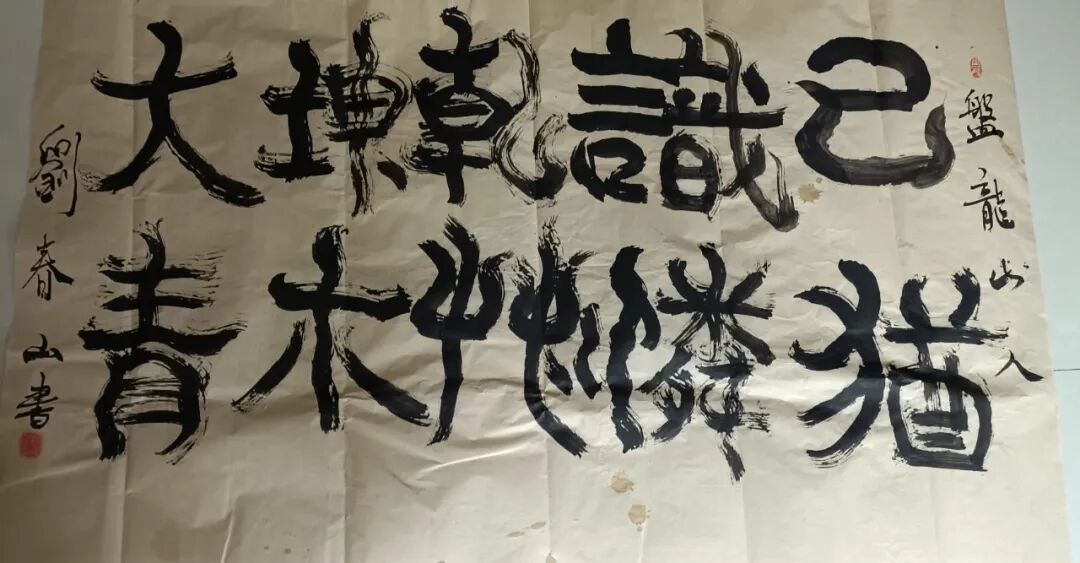 盤龍山人
已識乾坤大
猶憐艸木青
劉春山書